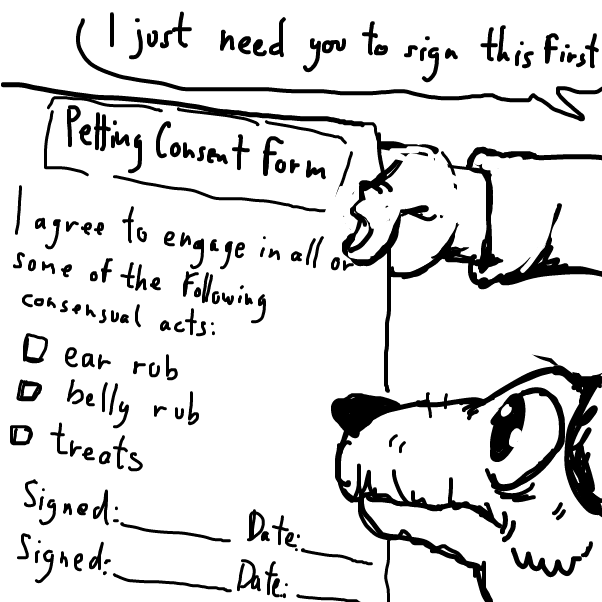 I just need you to sign this first
Petting Consent Form
I agree to engage in all or
some of the following
consensual acts:
ear rub
belly rub
treats
Signed: Date:
Signed: Date: